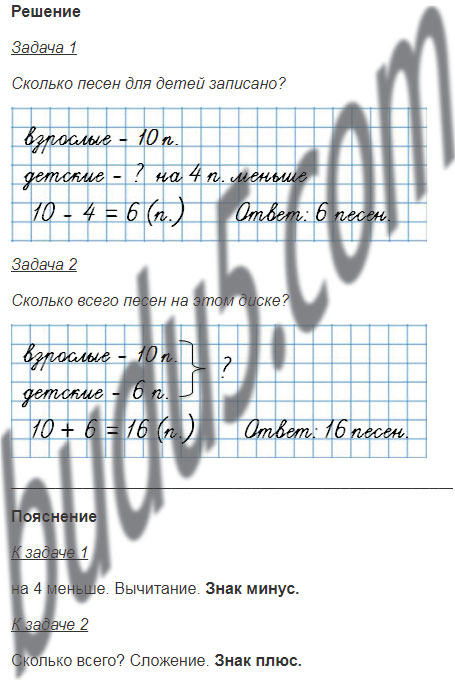 Решение
Задача 1
Сколько песен для детей записано?
взрослые - 10 п.
детские - ? на 4 п. меньше
10 - 4 = 6 (п.) Ответ: 6 песен.
Задача 2
Сколько всего песен на этом диске?
взрослые - 10 п.
детские - 6 п.
?
10 + 6 = 16 (п.) Ответ: 16 песен.
Пояснение
К задаче 1
на 4 меньше. Вычитание. Знак минус.
К задаче 2
Сколько всего? Сложение. Знак плюс.
budu5.com